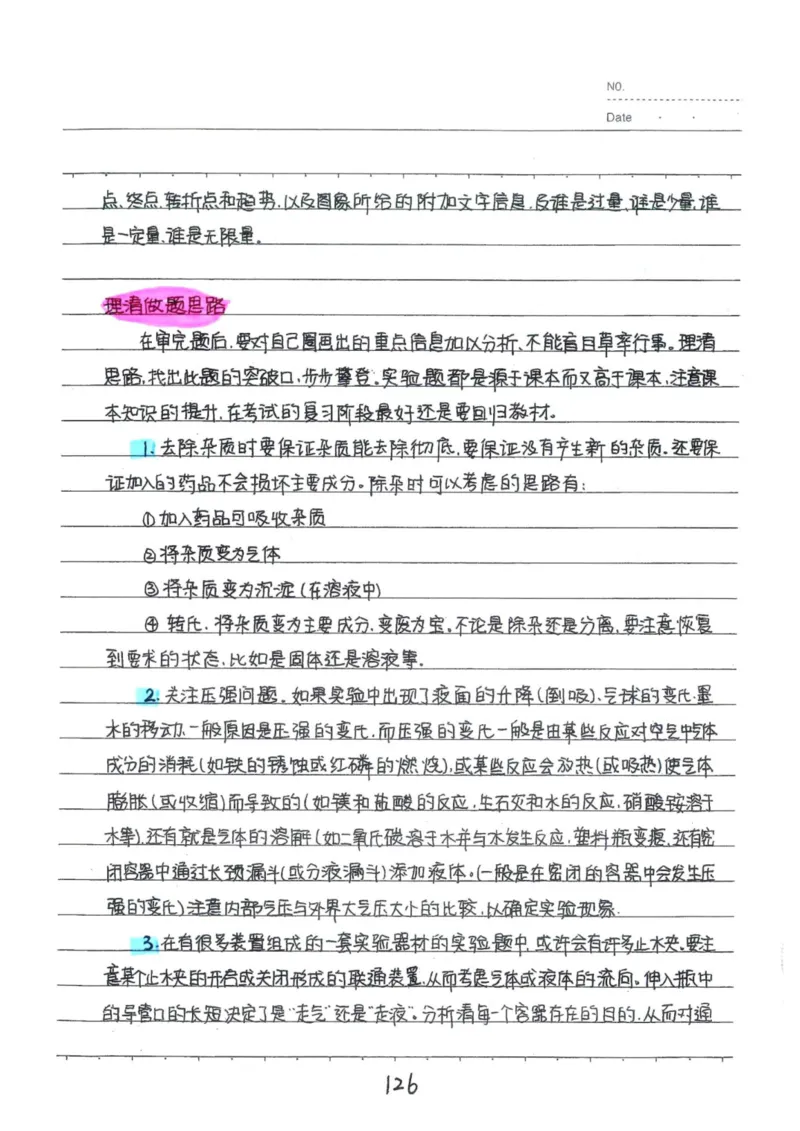 NO.
Date
点、终点、转折点和趋势，以及图象所给的附加文字信息，及谁是过量、谁是少量，谁
是一定量、谁是无限量。
理清做题思路
在审完题后，要对自己圈画出的重点信息加以分析，不能盲目草率行事。理清
思路，找出此题的突破口，步步攀登。实验题都是源于课本而又高于课本，注意课
本知识的提升，在考试的复习阶段最好还是要回归教材。
1. 去除杂质时要保证杂质能去除彻底，要保证没有产生新的杂质。还要保
证加入的药品不会损坏主要成分。除杂时可以考虑的思路有：
①加入药品可吸收杂质
②将杂质变为气体
③将杂质变为沉淀（在溶液中）
④ 转化，将杂质变为主要成分，变废为宝。不论是除杂还是分离，要注意恢复
到要求的状态，比如是固体还是溶液等。
2. 关注压强问题。如果实验中出现了液面的升降（倒吸）、气球的变化、墨
水的移动，一般原因是压强的变化，而压强的变化一般是由某些反应对空气中气体
成分的消耗（如铁的锈蚀或红磷的燃烧），或某些反应会放热（或吸热）使气体
膨胀（或收缩）而导致的（如镁和盐酸的反应，生石灰和水的反应，硝酸铵溶于
水等），还有就是气体的溶解（如二氧化碳溶于水并与水发生反应，塑料瓶变瘪，还有密
闭容器中通过长颈漏斗（或分液漏斗）添加液体。（一般是在密闭的容器中会发生压
强的变化）注意内部气压与外界大气压大小的比较，以确定实验现象.
3. 在有很多装置组成的一套实验器材的实验题中，或许会有许多止水夹。要注
意某个止水夹的开启或关闭形成的联通装置，从而考虑气体或液体的流向。伸入瓶中
的导管口的长短决定了是“走气”还是“走液”。分析清每一个容器存在的目的，从而对通
126